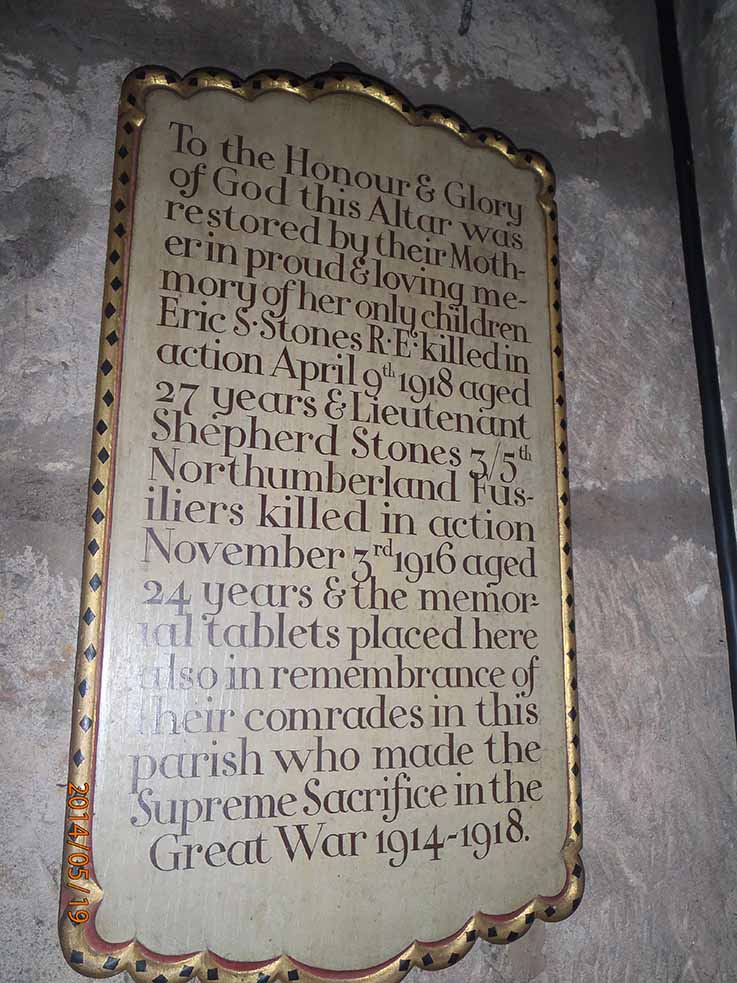 To the Honour & Glory
of God this Altar was
restored by their Moth-
er in proud & loving me-
mory of her only children
Eric S. Stones R.E. killed in
action April 9th 1918 aged
27 years & Lieutenant
Shepherd Stones 3/5th
Northumberland Fus-
iliers killed in action
November 3rd 1916 aged
24 years & the memor-
ial tablets placed here
also in remembrance of
their comrades in this
parish who made the
Supreme Sacrifice in the
Great War 1914-1918.
2014/05/19